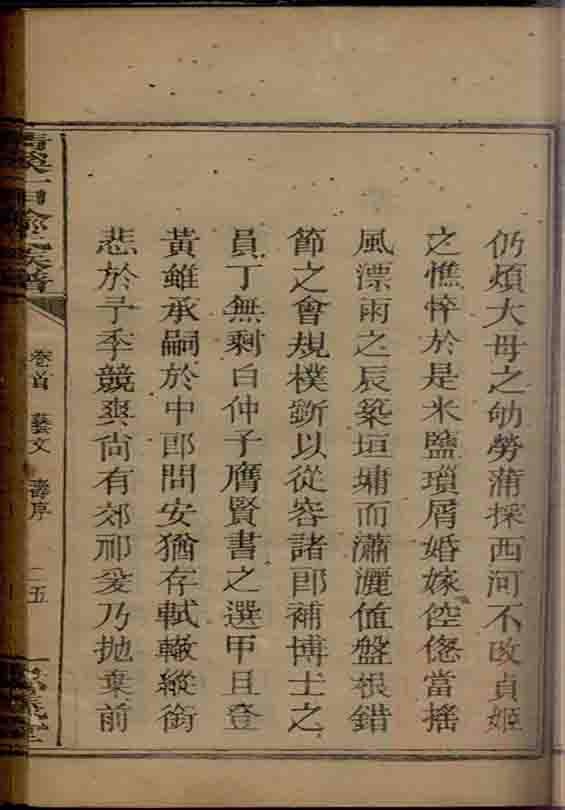 仍煩大母之劬勞蒲採西河不改貞姬
之憔悴於是米鹽瑣屑婚嫁倥傯當搖
風漂雨之辰築垣墉而瀟灑值盤根錯
節之會規樸斲以從容諸郎補博士之
員丁無剩白仲子膺賢書之選甲且登
黃雖承嗣於中郎問安猶存軾轍縱銜
悲於子季競爽尚有郊祁爰乃拋棄前
氏族譜
卷首
藝文
壽序
二五
堂